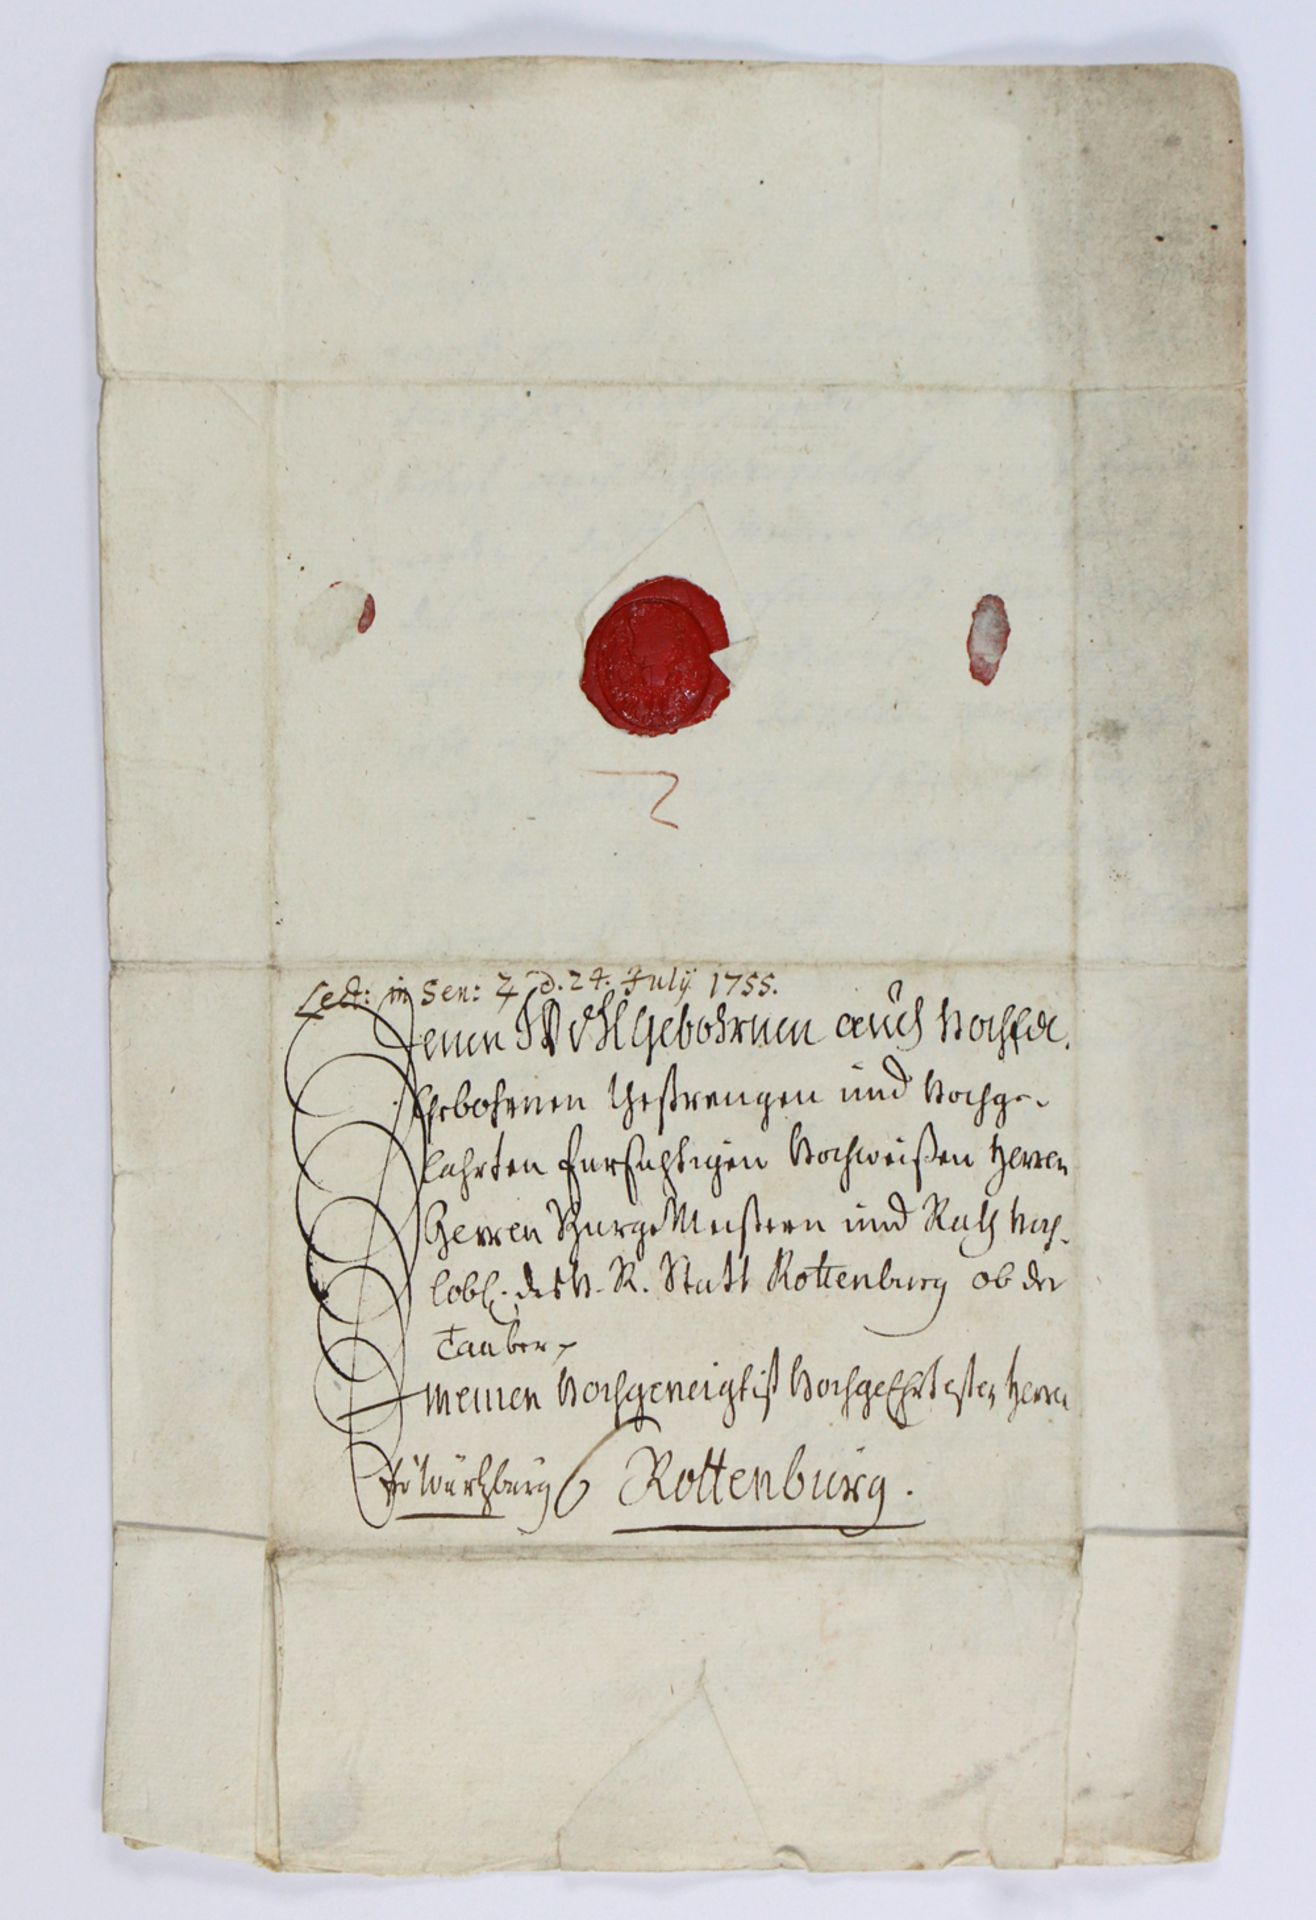 Lect: in Sen: 4 d. 24. Julÿ 1755.
Denen WohlGebohrnen auch HochEdl.
Gebohrnen Gestrengen und Hochge-
lahrten Fursichtigen Hochweißen Herren
Herren BurgeMeistern und Rath Hoch-
lobl. des H. R. Statt Rottenburg ob der
Tauber
meinen Hochgeneigtist HochgeEhrtesten Herren
Würtzburg Rottenburg.